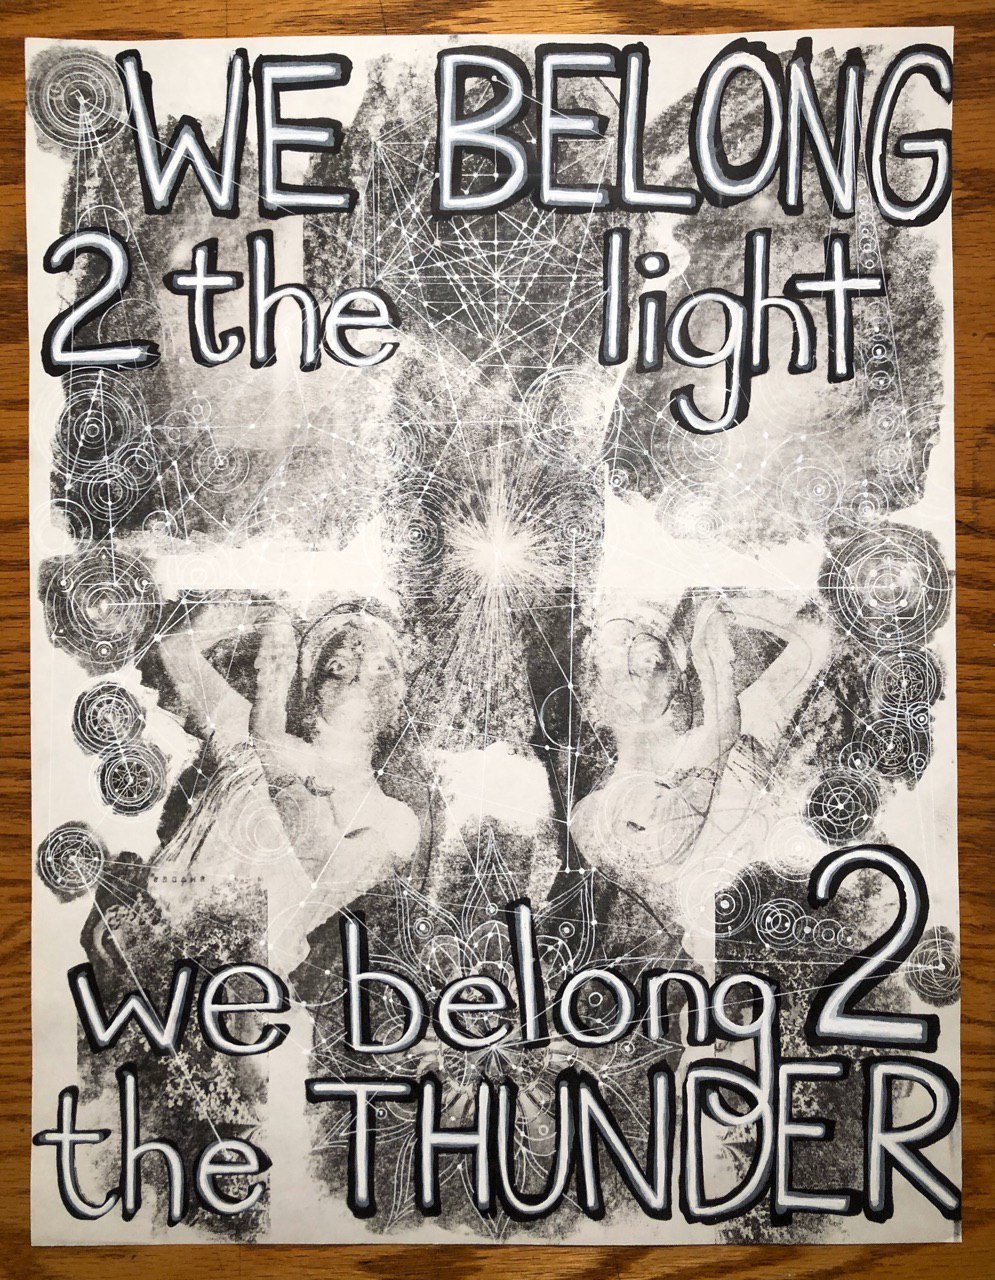 WE BELONG
2 the light
we belong 2
the THUNDER